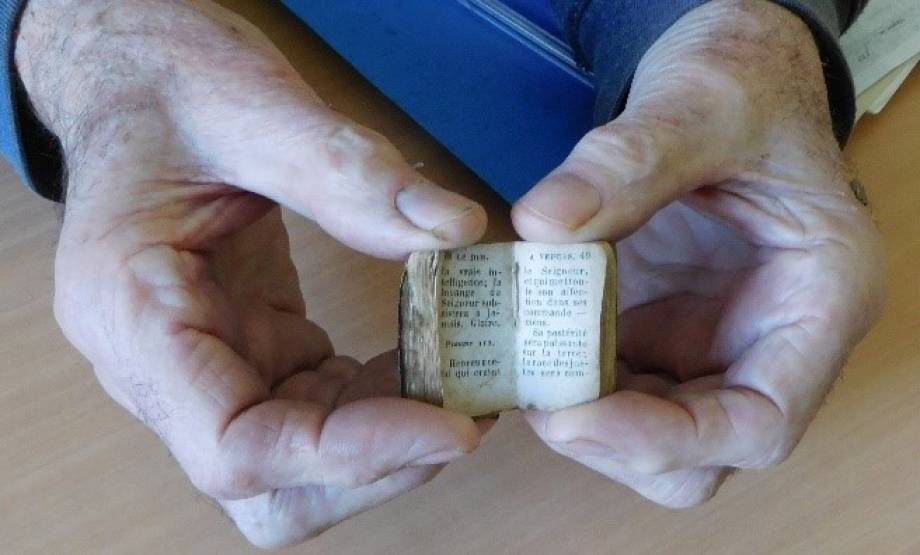 LE DIM.
la vraie in-
telligence; la
louange du
Seigneur sub-
sistera à ja-
mais. Gloire.
PSAUME 111.
Heureux ce-
lui qui craint
A VEPRES. 49
le Seigneur,
et qui met tou-
te son affec-
tion dans ses
commande-
mens.
Sa postérité
sera puissante
sur la terre;
la race des jus-
tes sera